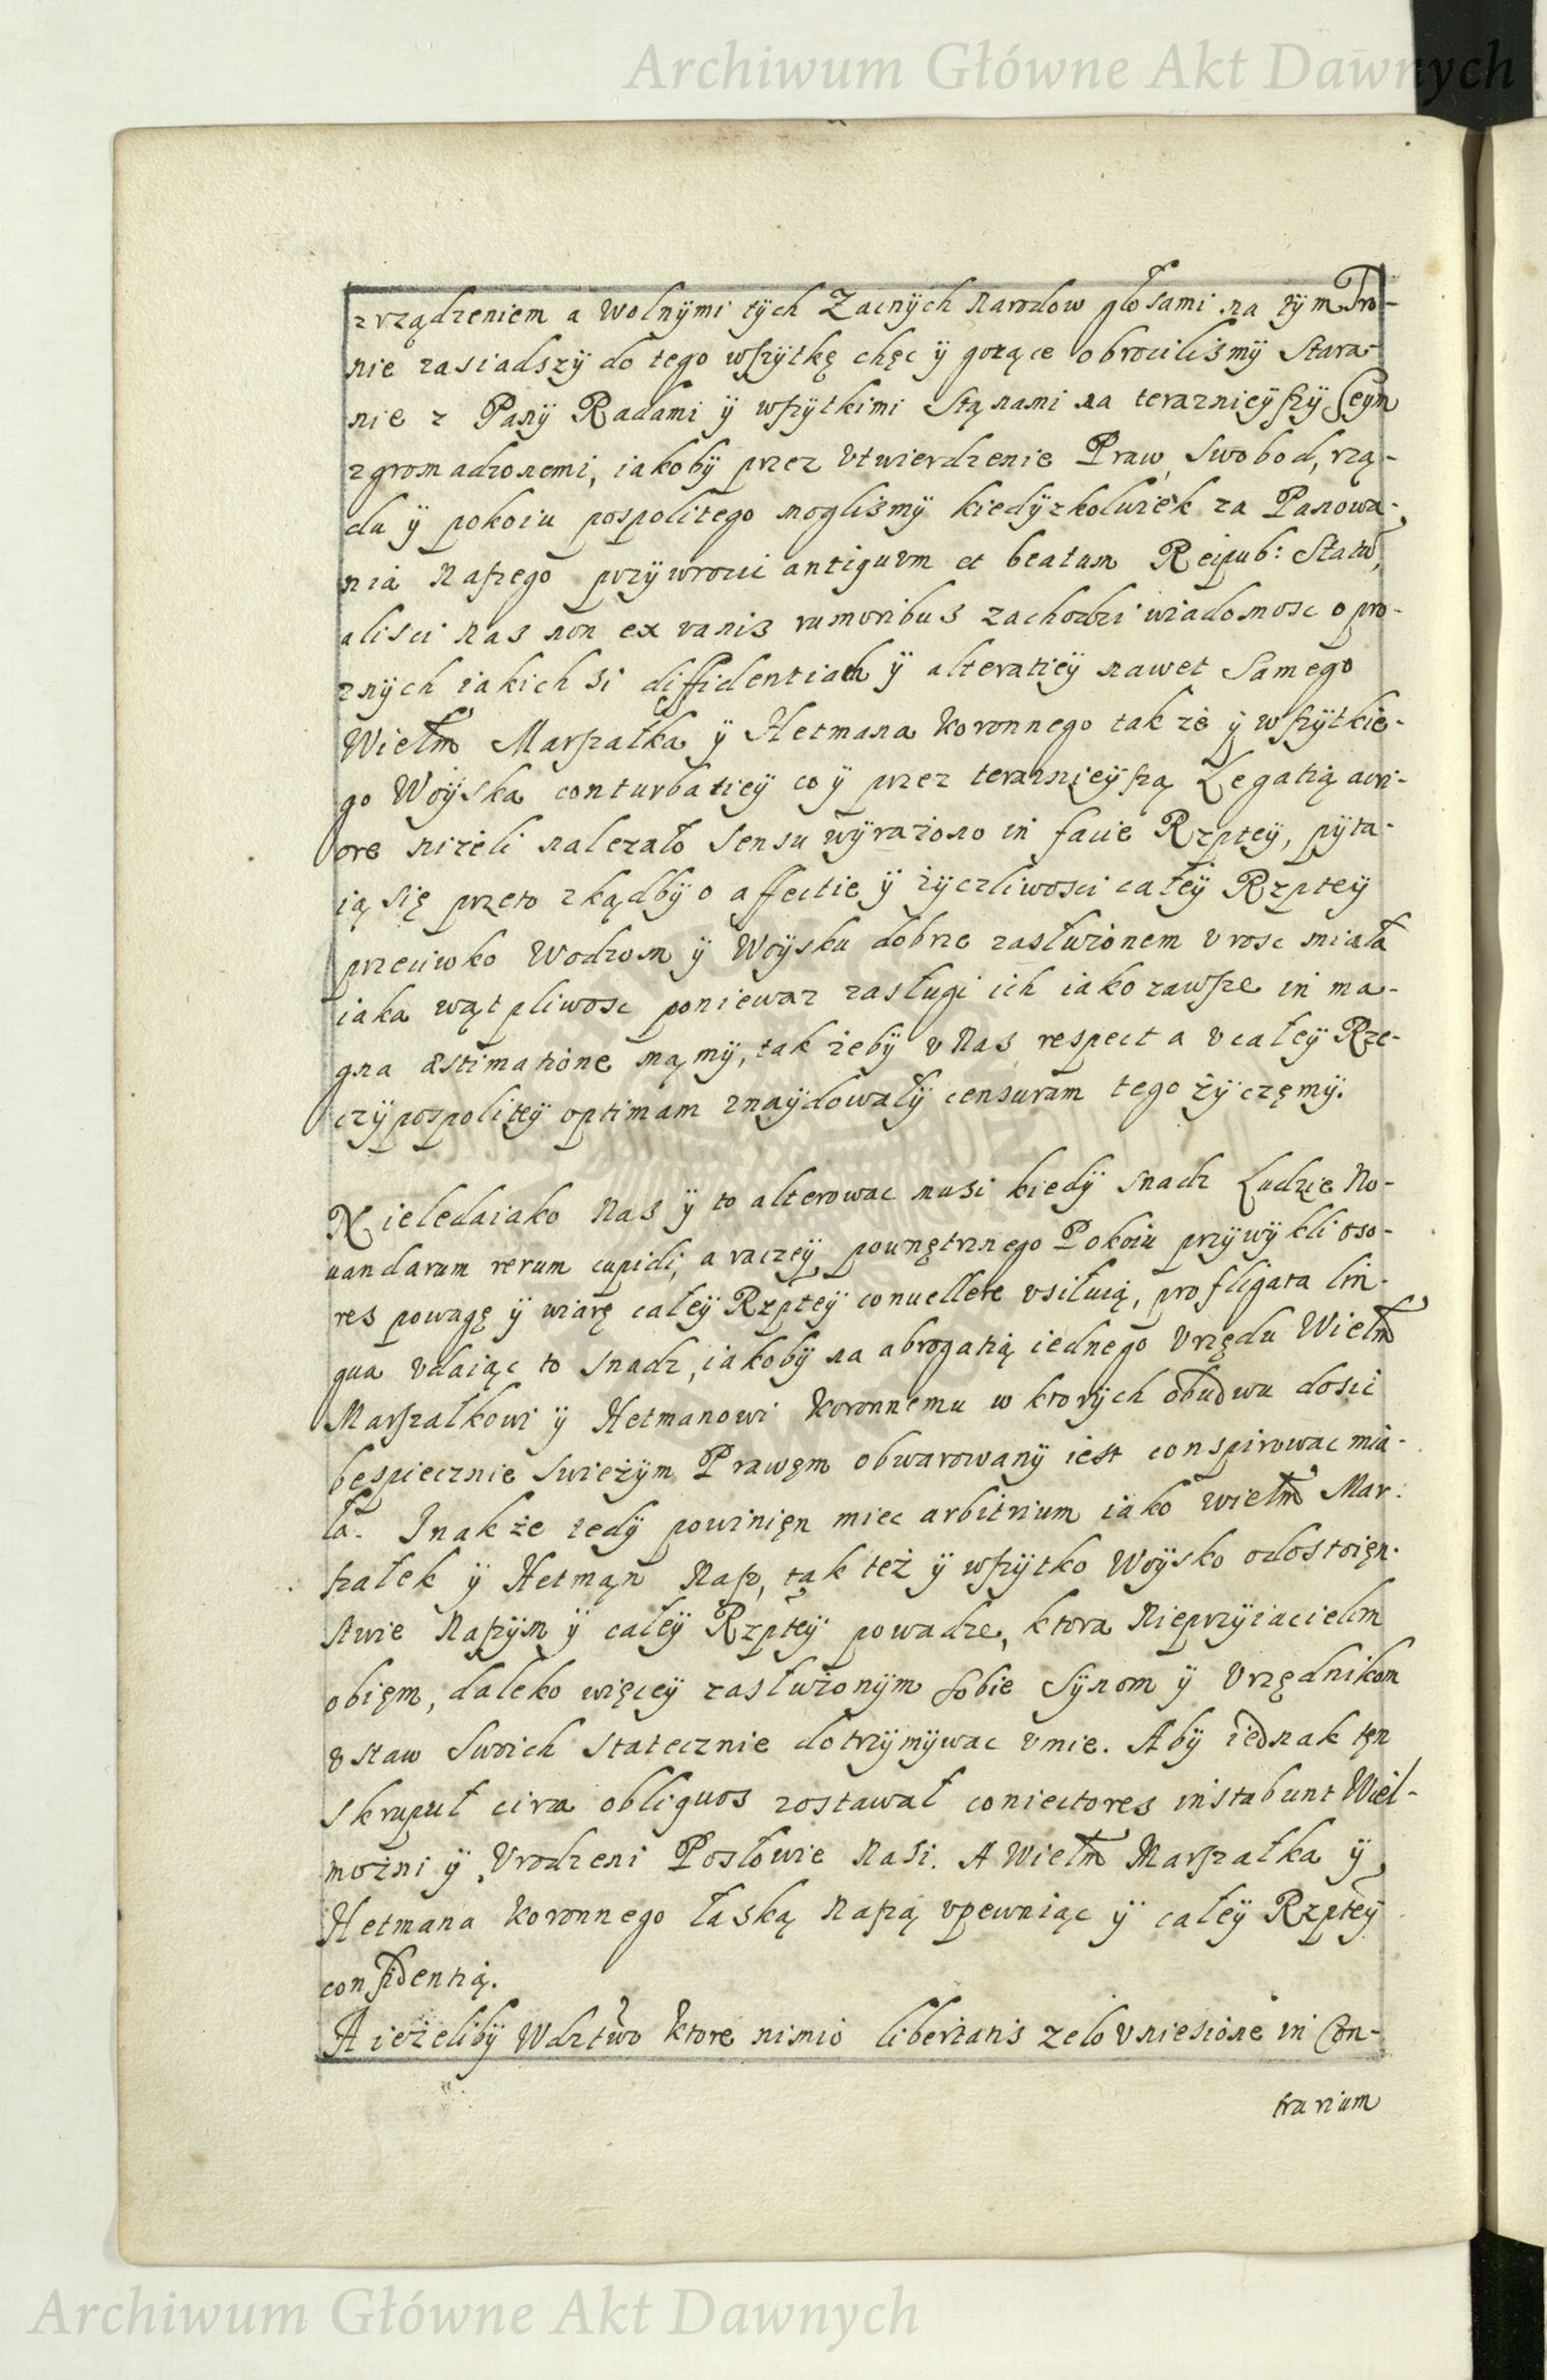 Archiwum Główne Akt Dawnych
zrządzeniem a wolnÿmi tÿch Zacnÿch Narodow głosami na tÿm Tro-
nie zasiadszÿ do tego wszÿtkę chęc ÿ gorące obrocilismÿ Stara-
nie z Panÿ Radami ÿ wszÿtkimi Stąnami na teraznieÿszÿ Seÿm
zgromadzonemi, iakobÿ przez Vtwierdzenie Praw, Swobod, rzą-
du ÿ pokoiu pospolitego moglismÿ kiedÿzkolwiek za Panowa-
nia Naszego przÿwroci antiquum et beatum Reipub: Statũ,
alisci nas non ex vanis rumoribus zachodzi wiadomosc o pro-
znÿch iakichsi diffidentiach ÿ alteratieÿ nawet Samego
Wielm̃ Marszałka ÿ Hetmana Koronnego tak ze ÿ wszÿtkie-
go Woÿska conturbatieÿ co ÿ przez teraznieÿszą Legatią acri-
ore nizeli nalezało sensu wÿrazono in facie Rzpteÿ, pÿta-
ią się przeto zkądbÿ o affectie ÿ zÿczliwosci całeÿ Rzpteÿ
przeciwko Wodzom ÿ Woÿsku dobrze zasłuzonem vrosc miała
iaka wątpliwosc poniewaz zasługi ich iako zawsze in ma-
gna æstimatione mąmÿ, tak zebÿ v Nas respect a v całeÿ Rze-
czÿpospoliteÿ optimam znaÿdowałÿ censuram tego zÿczęmÿ.
Nieledaiako Nas ÿ to alterowac musi kiedÿ snadz Ludzie No-
uandarum rerum cupidi, a raczeÿ pownętrznego Pokoiu przÿwÿkli oso-
res powagę ÿ wiarę całeÿ Rzpteÿ conuellere vsiłuią, profligata lin-
gua vdaiąc to snadz, iakobÿ na abrogatią iednego Vrzędu Wielm̃
Marszałkowi ÿ Hetmanowi Koronnemu w ktorÿch obudwu dosić
bespiecznie swiezÿm Prawęm obwarowanÿ iest conspirowac mia-
ła. Inakże tedÿ powinięn miec arbitrium iako wielm̃ Mar-
szałek ÿ Hetmąn Nasz, tak też ÿ wszÿtko Woÿsko o dostoięn-
stwie Naszÿm ÿ całeÿ Rzpteÿ powadze, ktora Nieprzÿiacielom
obięm, daleko więceÿ zasłuzonÿm sobie Sÿnom ÿ Vrzędnikom
vstaw swoich statecznie dotrzÿmÿwac vmie. Abÿ iednak tęn
skrupuł circa obliquos zostawał coniectores instabunt Wiel-
możni ÿ Vrodzeni Posłowie Nasi. A Wielm̃ Marszałka ÿ
Hetmana Koronnego łaską Naszą vpewniąc ÿ całeÿ Rzpteÿ
confidentią.
A ieżelibÿ Wdztwo ktore nimio libertatis zelo vniesione in Con-
trarium
Archiwum Główne Akt Dawnych